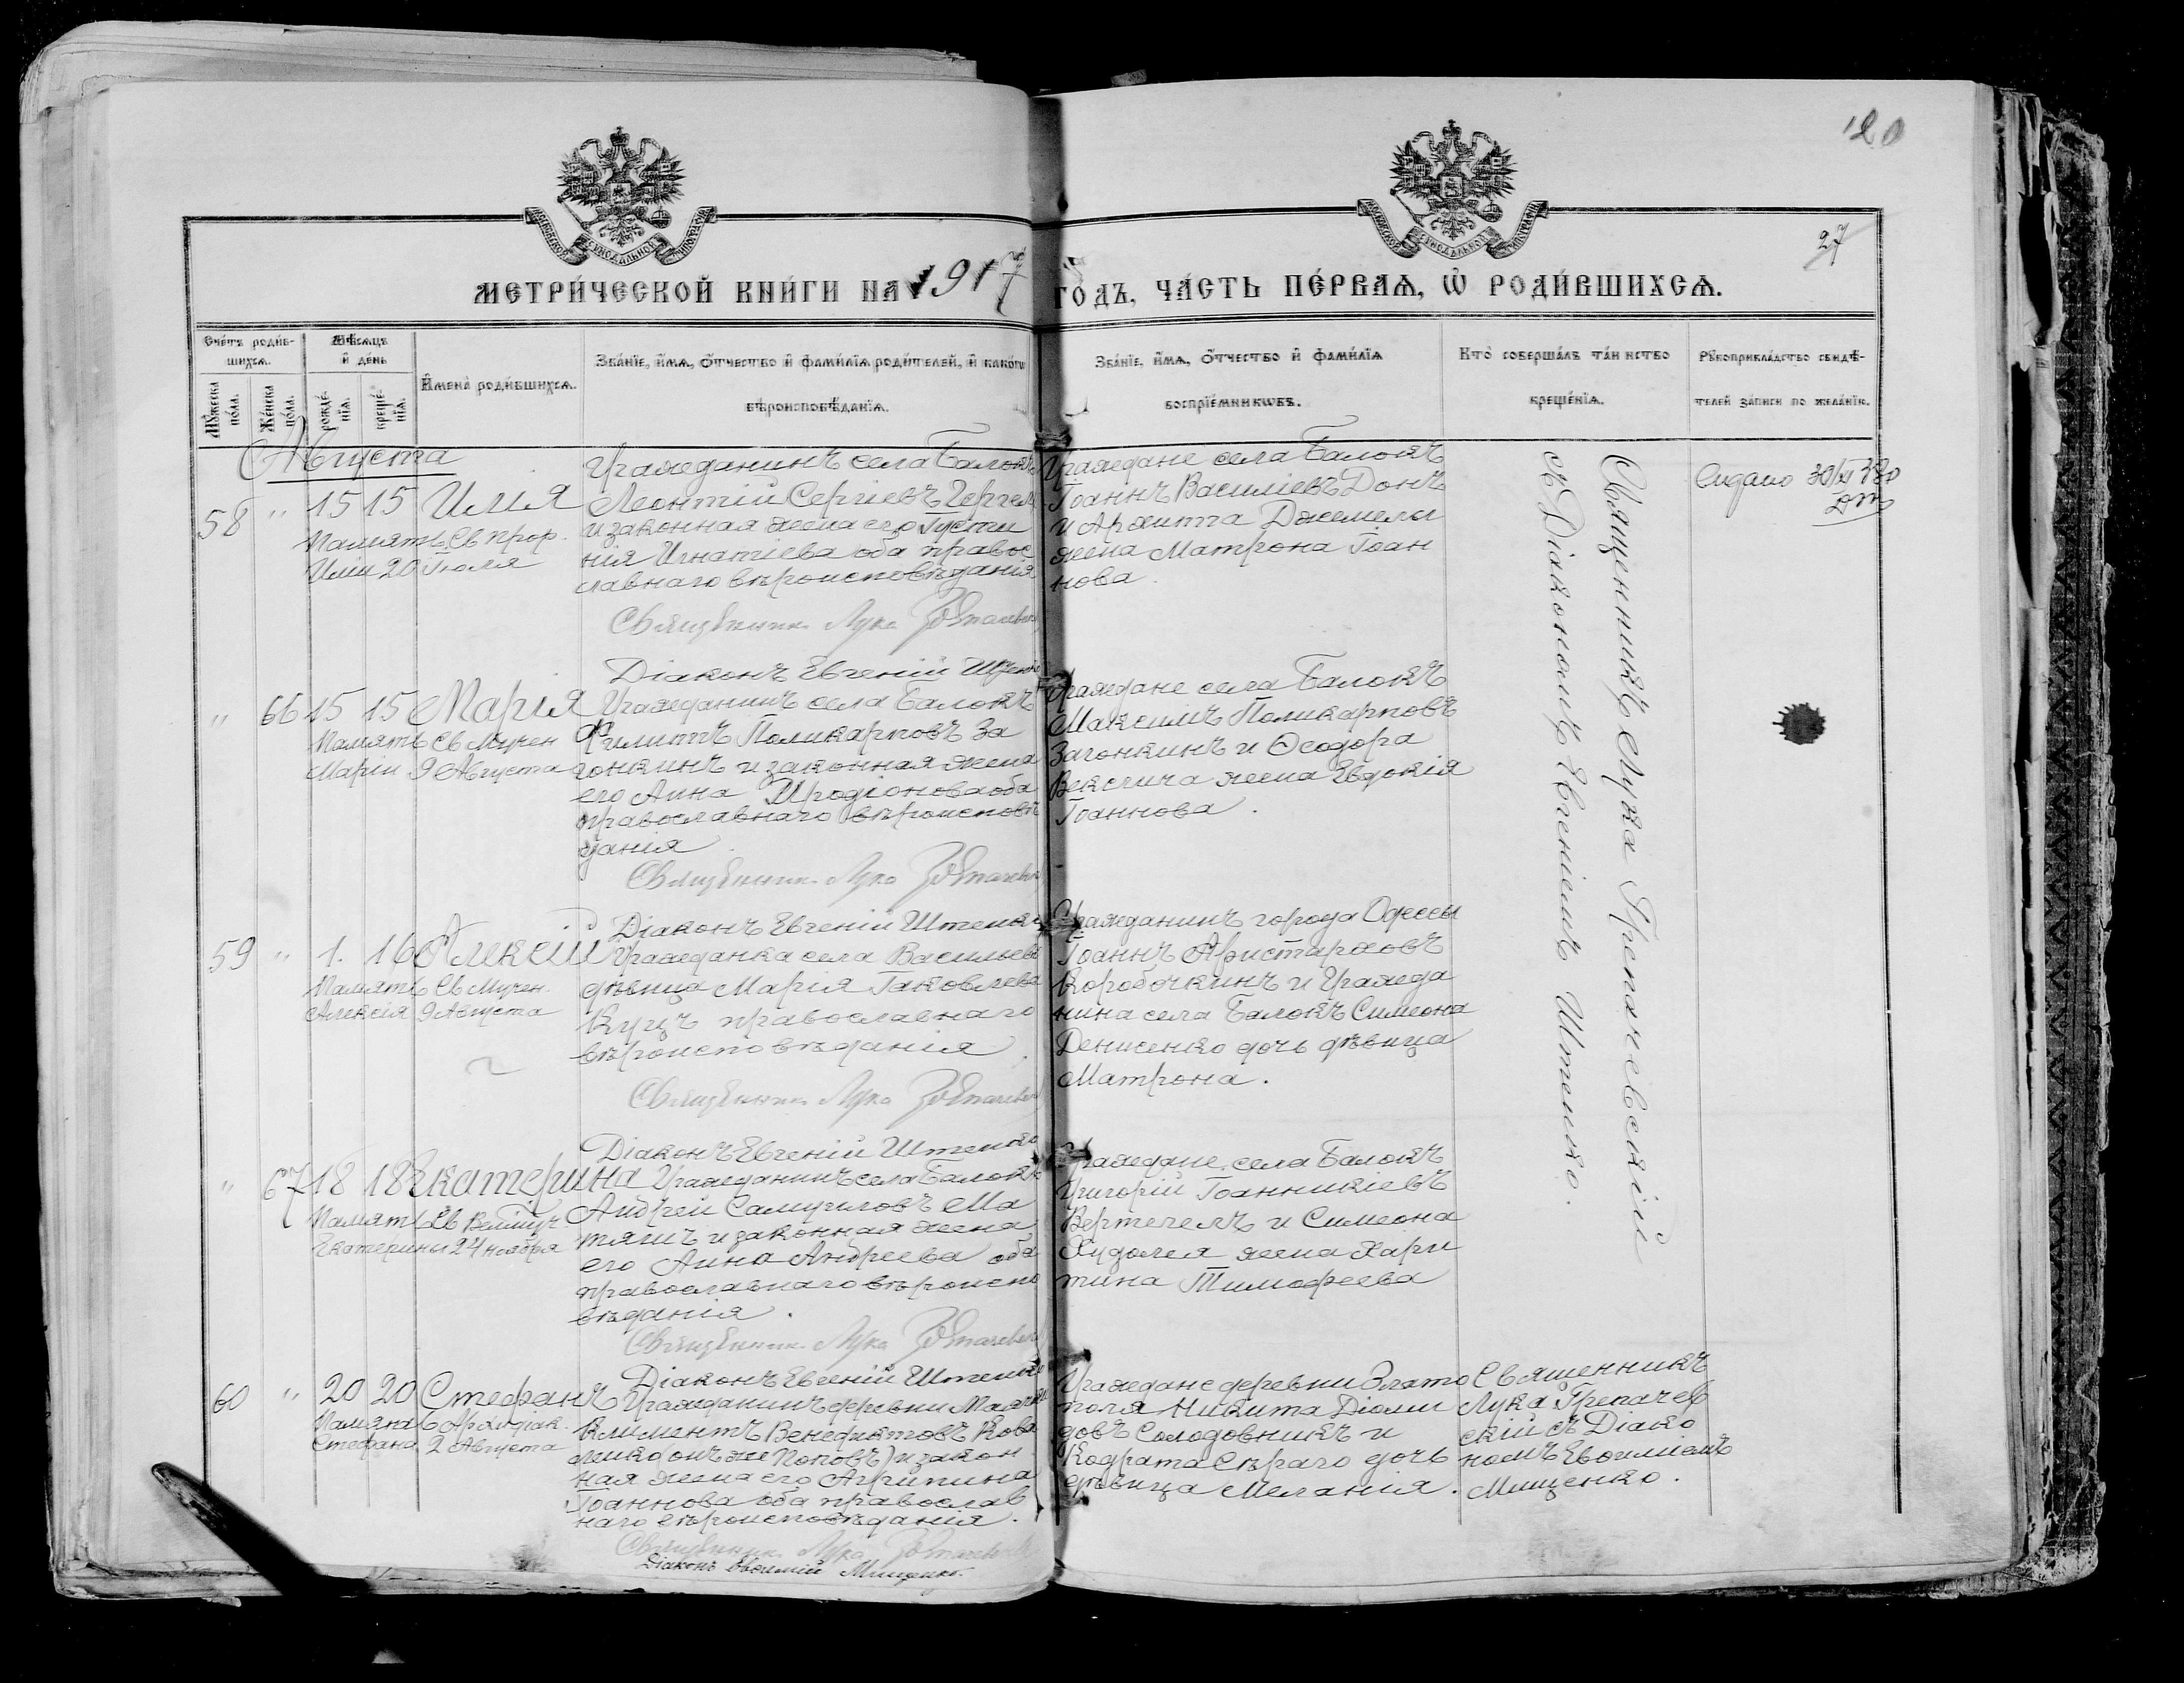 120
27
МЕТРИ́ЧЕСКОЙ КНИ́ГИ НА 1917 ГО́ДЪ, ЧА́СТЬ ПЕ́РВАѦ, Ѡ РОДИ́ВШИХСѦ.
Сче́тъ роди́в-
шихсѧ.
Мꙋ́жеска
по́ла.
Же́нска
по́ла.
Мѣ́сѧцъ
и҆ де́нь
рожде́-
нїѧ.
креще́-
нїѧ.
И҆мена̀ роди́вшихсѧ.
Зва́нїе, и҆́мѧ, ѻ҆́тчество и҆ фами́лїѧ роди́телей, и҆ како́гѡ
вѣроисповѣ́данїѧ.
Зва́нїе, и҆́мѧ, ѻ҆́тчество и҆ фами́лїѧ
воспрїе́мникѡвъ.
Кто̀ соверша́лъ та́инство
креще́нїѧ.
Рꙋкоприкла́дство свидѣ́-
телей за́писи по жела́нїю.
Августа
58 " 15 15 Илія
Память Св. Прор.
Иліи 20 Іюля
Гражданинъ села Балокъ
Леонтій Сергіевъ
и законная жена его Густи
нія Игнатіева оба правос
лавнаго вѣроисповѣданія
Священникъ Лука
Діаконъ Евгеній
Граждане села Балокъ
Іоаннъ Василіевъ Донъ
и Архиппа Джемелы
жена Матрона Іоан
нова.
Священникъ Лука Грепачевскій
съ Діакономъ Евгеніемъ Штепико.
" 66 15 15 Марія
Память Св Мучен
Маріи 9 Августа
Гражданинъ села Балокъ
Филиппъ Поликарповъ За
гонкинъ и законная жена
его Анна Иродіонова оба
православнаго вѣроисповѣ
данія
Священникъ Лука
Діаконъ Евгеній
Граждане села Балокъ
Максимъ Поликарповъ
Загонкинъ и Ѳеодора
жена Евдокія
Іоаннова.
59 " 1. 16 Алексій
Память Св Мучен.
Алексія 9 Августа
Гражданка села
дѣвица Марія Іаковлева
Куцъ православнаго
вѣроисповѣданія.
Священникъ Лука
Діаконъ Евгеній
Гражданинъ города Одессы
Іоаннъ Аристарховъ
Коробочкинъ и Гражда
нина села Балокъ Симеона
Денисенко дочь дѣвица
Матрона.
" 67 18 18 Екатерина
Память Св Велмуч
Екатерины 24 ноября
Гражданинъ села Балокъ
Андрей Самуиловъ Ма
тяшъ и законная жена
его Анна Андреева оба
православнаго вѣроиспо
вѣданія.
Священникъ Лука
Діаконъ Евгеній
Граждане села Балокъ
Григорій Іоанникіевъ
Вертечелъ и Симеона
Худолея жена Хари
тина Тимофеева
60 " 20 20 Стефанъ
Память Архидіак.
Стефана 2 Августа
Гражданинъ деревни
Климентъ Венедиктовъ Кова
ленко (онъ же Поповъ) и закон
ная жена его Агрипина
Іоаннова оба православ
наго вѣроисповѣданія.
Священникъ Лука
Діаконъ Евѳимій Мищенко.
Граждане деревни Злато
поля Никита Діоми
довъ Солодовникъ и
Кодрата Сѣраго дочь
дѣвица Меланія.
Священникъ
Лука Грепачев
скій съ Діако
номъ Евѳиміемъ
Мищенко.